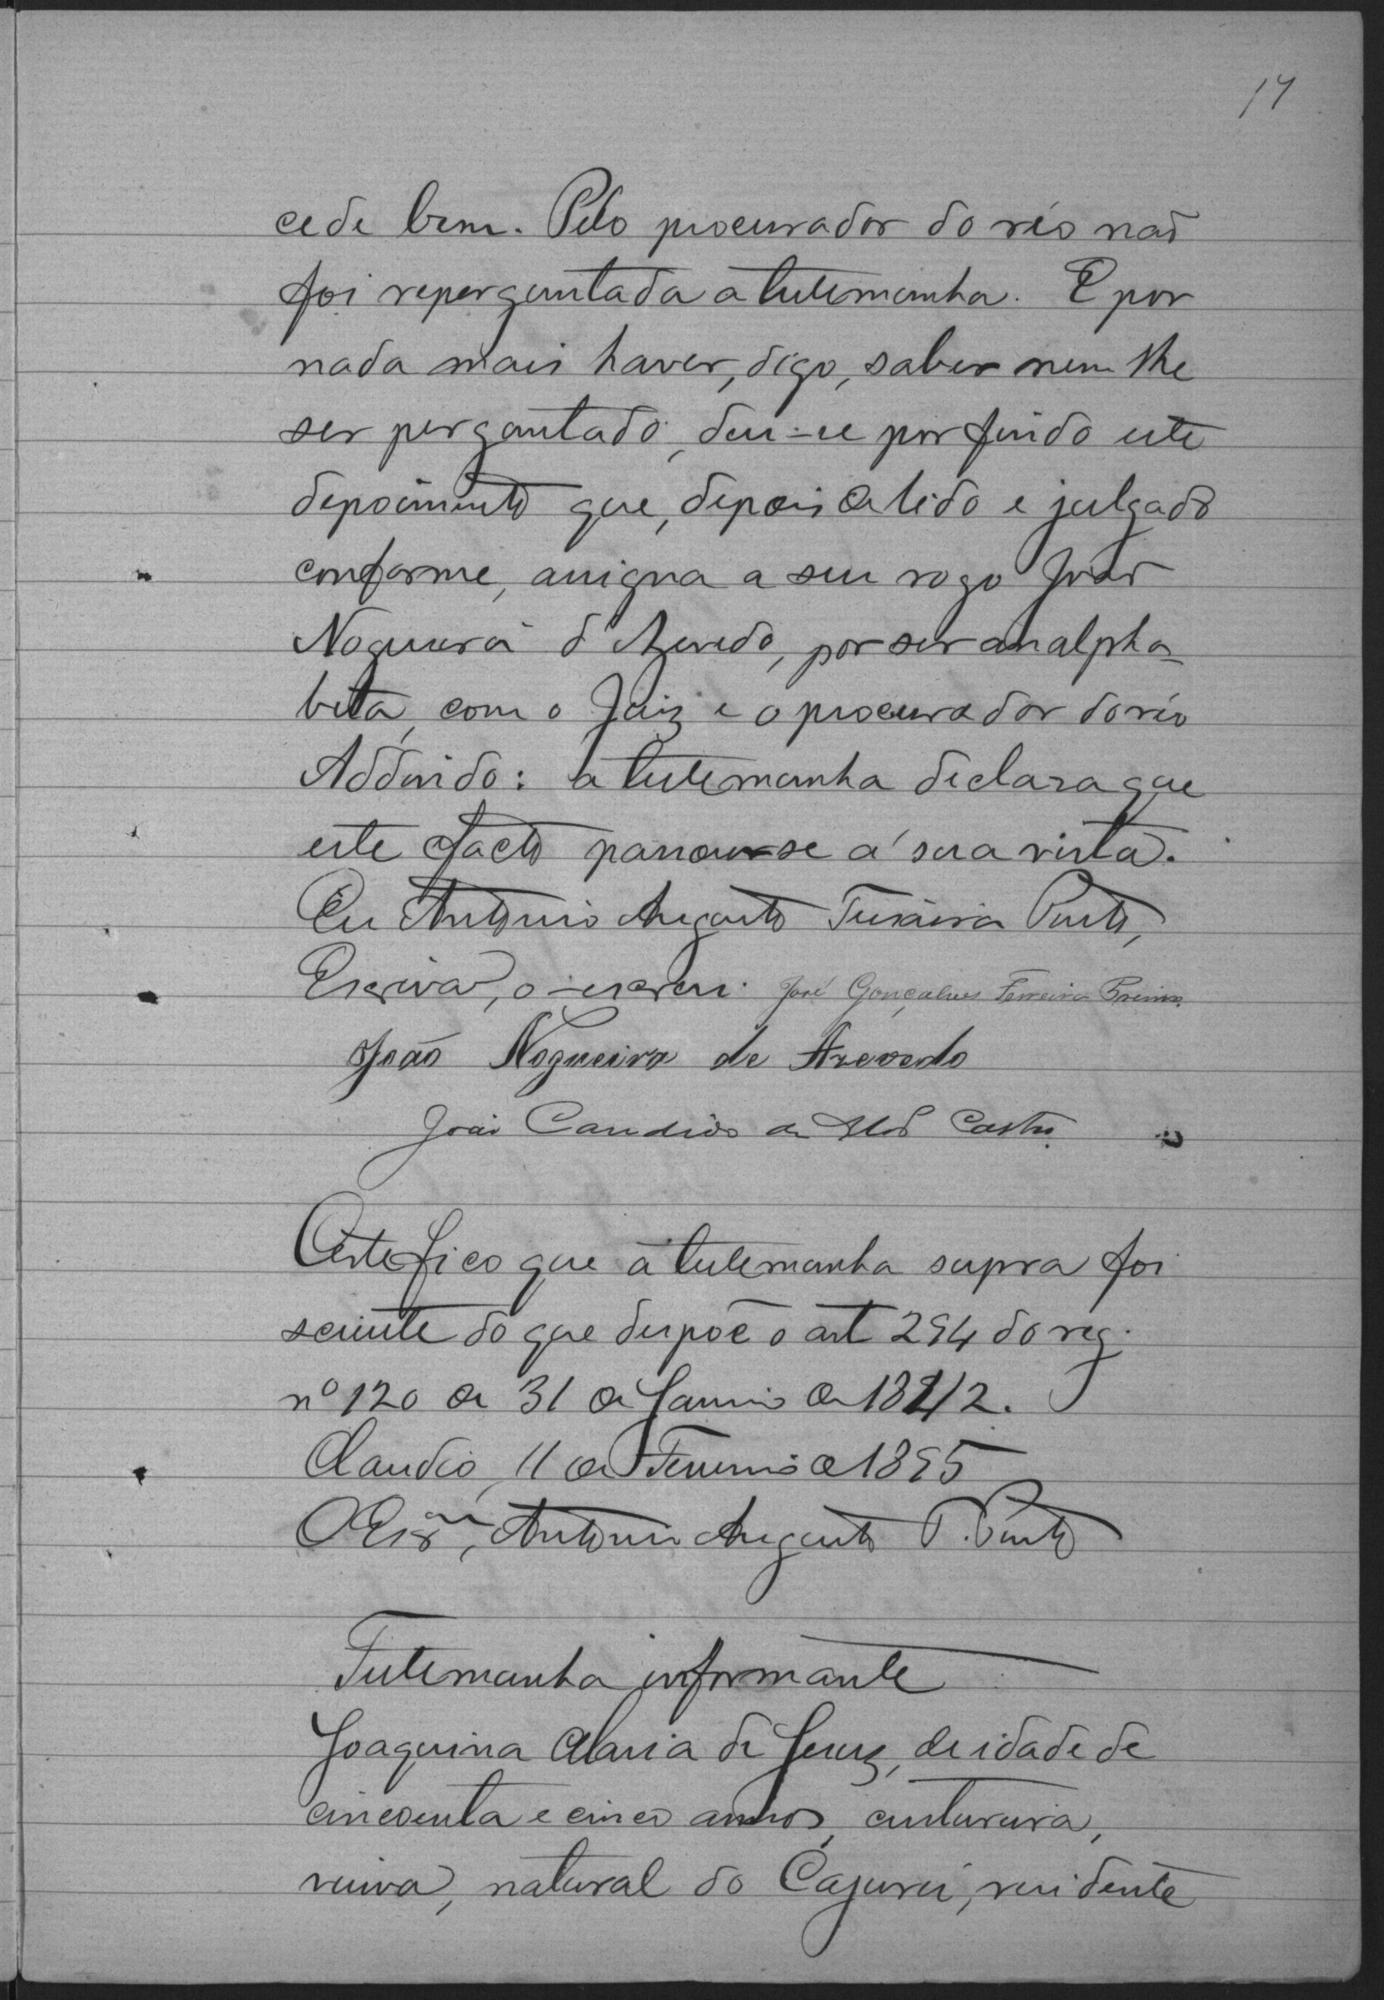 17
cede bem. Pelo procurador do réo não
foi reperguntada a testemunha. E por
nada mais haver, digo, saber nem lhe
ser perguntado, deu-se por findo este
depoimento que, depois de lido e julgado
conforme, assigna a seu rogo João
Nogueira d'Azevedo, por ser analpha-
beta, com o Juiz e o procurador do réo
Addindo: a testemunha declara que
este facto passou-se á sua vista.
Eu Antonio Augusto Teixeira Pinto,
Escrivão, o escrevi. José Gonçalves Ferreira Primo
João Nogueira de Azevedo
João Candido de Castro
Certefico que a testemunha supra foi
sciente do que dispõe o art 294 do reg.
nº 120 de 31 de Janeiro de 1842.
Claudio, 11 de Fevereiro de 1895
O Escram, Antonio Augusto T. Pinto
Testemunha informante
Joaquina Maria de Jesus, de idade de
cincoenta e cinco annos, custureira,
viuva, natural do Cajuru, residente